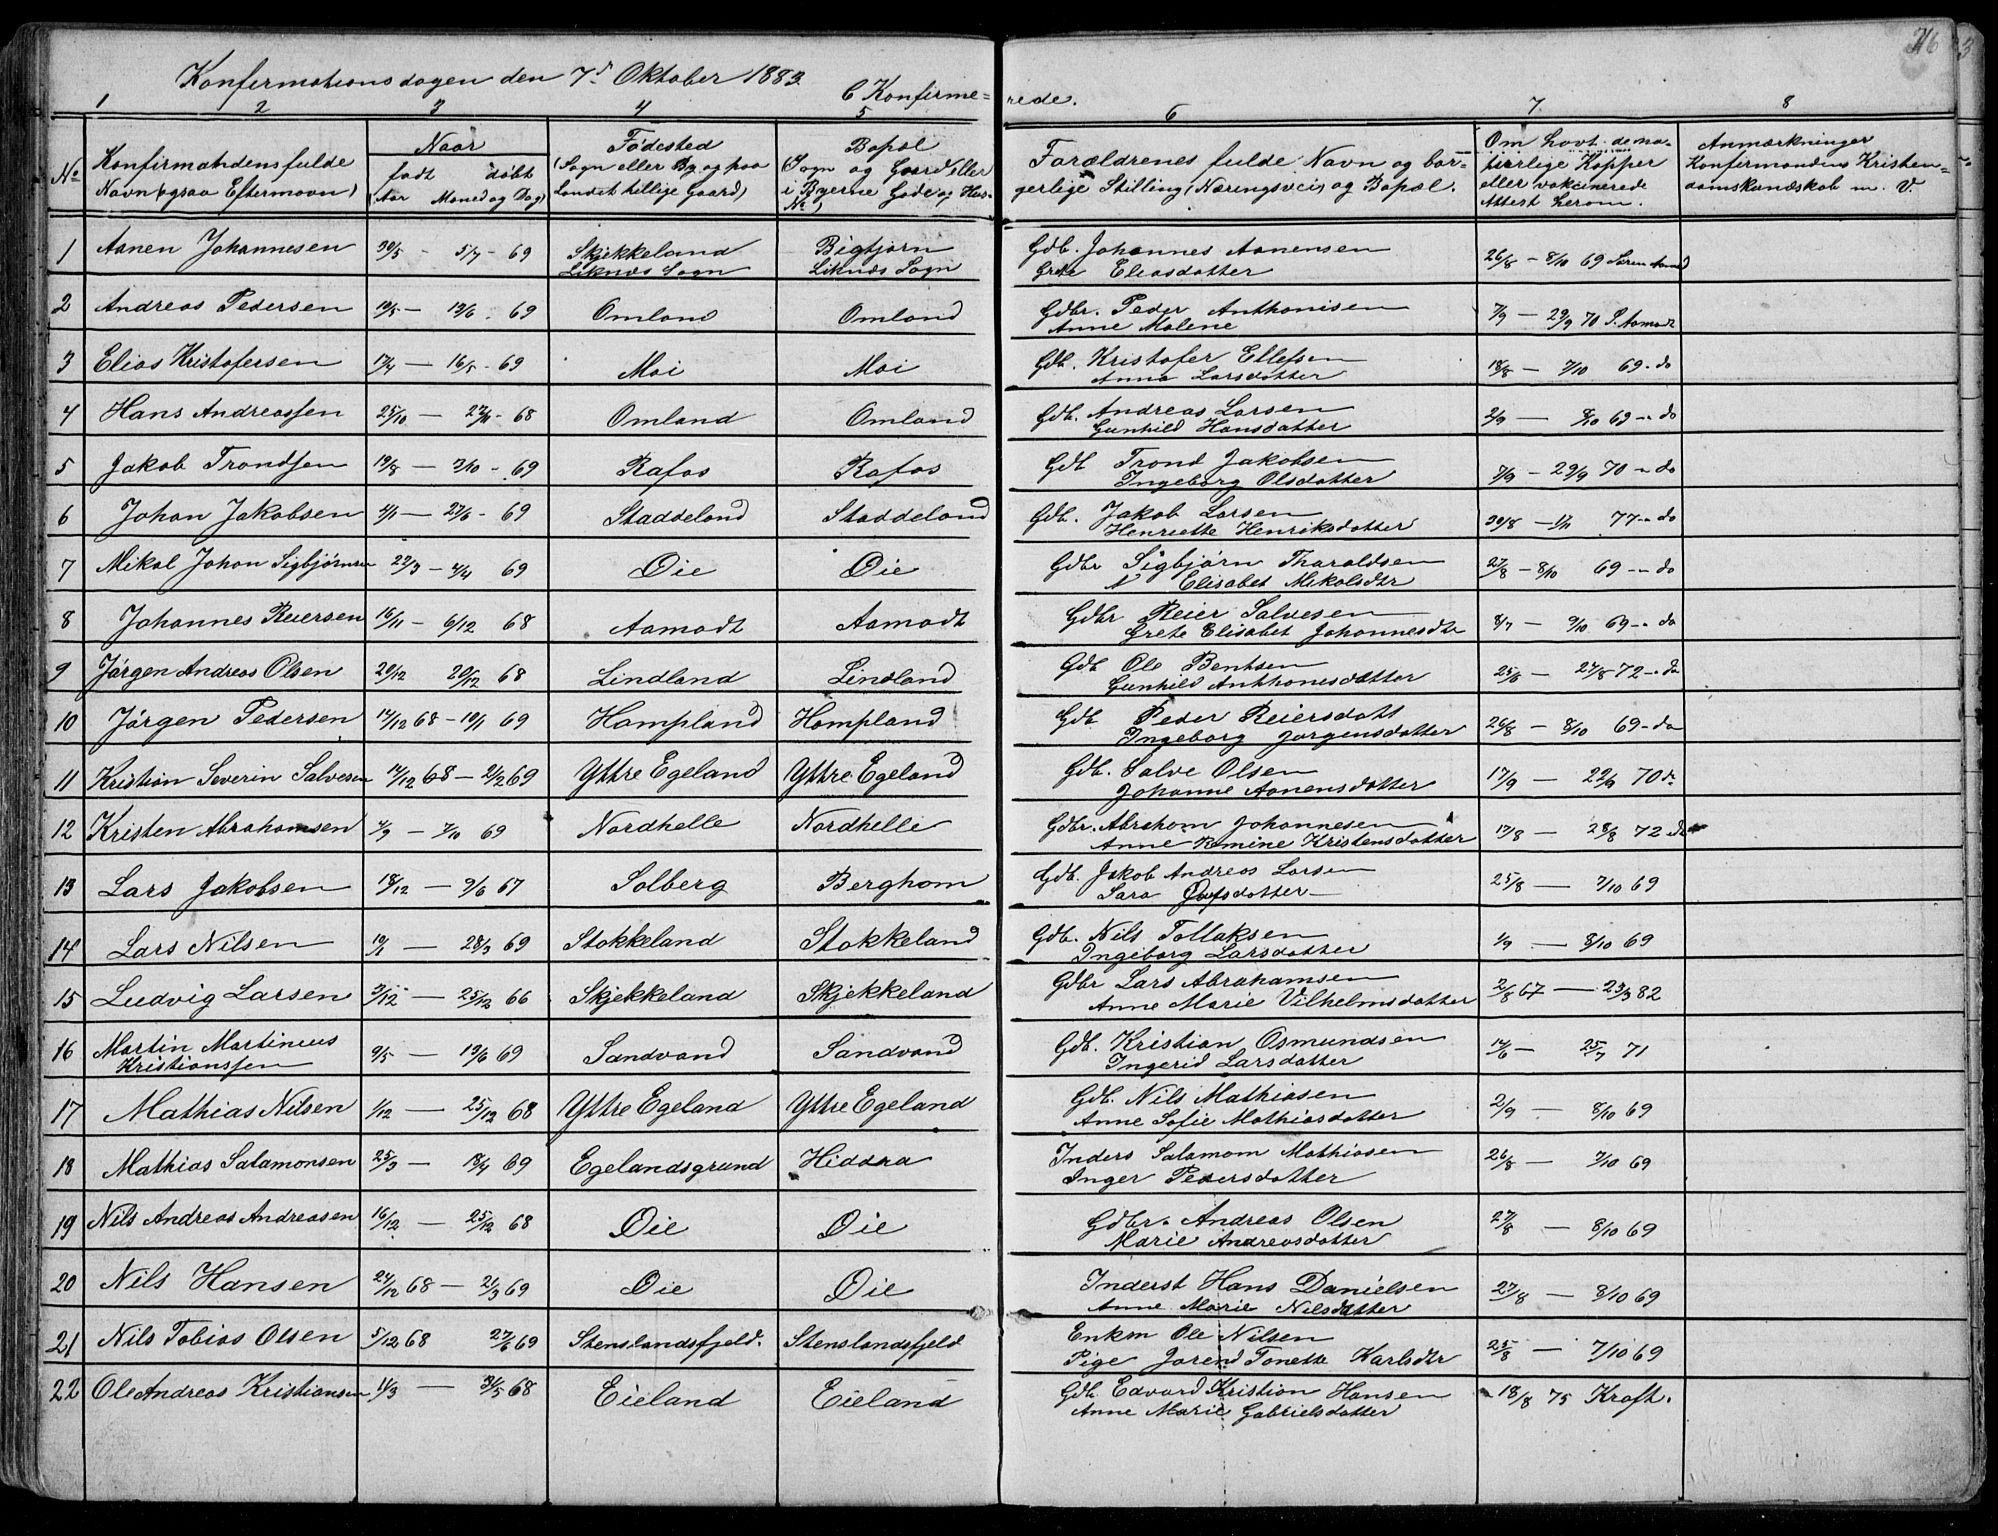 Konfirmationsdagen den 7de Oktober 1883.
C Konfirmerede.
76
1 2 3 4 5 6 7 8
No
Konfirmandens fulde Navn (ogsaa Efternavn)
Naar
født døbt
Aar Maaned og Dag
Fødested
(Sogn eller By og paa Landet tillige Gaard)
Bopæl
(Sogn og Gaard eller i Byerne Gade og Hus No)
Forældrenes fulde Navn og borgerlige Stilling (Næringsvei) og Bopæl.
Om havt de naturlige Kopper eller vakcinerede Attest herom.
Anmærkninger Konfirmandens Kristendomskundskab m. V.
1 Aanen Johannesen 30/5 – 5/7 – 69 Skjekkeland Liknæs Sogn Bigbjørn Liknæs Sogn Gdb. Johannes Aanensen Grete Eliasdatter 26/8 – 8/10 69 Søren Aamodt
2 Andreas Pedersen 19/5 – 13/6 . 69 Omland Omland Gdbr. Peder Anthonisen Anne Malene 7/9 – 29/9 70 P. Aamodt
3 Elias Kristofersen 17/4 – 16/5 – 69 Moi Moi Gdb. Kristofer Ellefsen Anna Larsdatter 18/8 – 7/10 69 – do
4 Hans Andreassen 25/10 – 22/11 – 68 Omland Omland Gdb. Andreas Larsen Gunhild Hansdatter 2/9 – 8/10 69 – do
5 Jakob Trondsen 19/8 – 3/10 – 69 Rafos Rafos Gdb Trond Jakobsen Ingeborg Olsdatter 7/9 – 29/9 70 – do
6 Johan Jakobsen 4/1 – 27/6 – 69 Staddeland Staddeland Gdb. Jakob Larsen Henriette Henriksdatter 30/8 – 1/11 77 – do
7 Mikal Johan Sigbjørnsen 22/3 – 4/4 69 Øie Øie Gdbr Sigbjørn Tharaldsen Elisabet Mikalsdtr 27/8 – 8/10 69 – do
8 Johannes Reiersen 16/11 – 6/12 68 Aamodt Aamodt Gdbr Reier Salvesen Grete Elisabet Johannesdtr 8/7 – 9/10 69 – do
9 Jørgen Andreas Olsen 20/12 20/12 68 Lindland Lindland Gdb Ole Bentsen Gunhild Anthonesdatter 25/6 – 27/8 72 – do
10 Jørgen Pedersen 14/12 68 – 10/1 69 Hompland Hompland Gdb Peder Reiersdatt Ingeborg Jørgensdatter 26/8 – 8/10 69 – do
11 Kristian Severin Salvesen 14/12 68 – 2/2 69 Yttre Egeland Yttre Egeland Gdb. Salve Olsen Johanne Aanensdatter 17/9 – 22/9 70 do
12 Kristen Abrahamsen 4/9 – 7/10 69 Nordhelle Nordhelle Gdbr. Abraham Johannesen Anne Romine Kristensdatter 17/8 – 28/8 72 do
13 Lars Jakobsen 18/12 – 9/6 67 Solberg Berghom Gdb. Jakob Andreas Larsen Sara 25/8 – 7/10 69
14 Lars Nilsen 19/1 – 28/3 69 Stokkeland Stokkeland Gdb. Nils Tollaksen Ingeborg Larsdatter 1/9 – 8/10 69
15 Ludvig Larsen 3/12 – 25/12 66 Skjekkeland Skjekkeland Gdbr Lars Abrahamsen Anne Marie Vilhelmsdatter 2/8 67 – 23/3 82
16 Martin Martinius Kristianssen 9/5 – 13/6 69 Sandvand Sandvand Gdb. Kristian Osmundsen Ingerid Larsdatter 14/6 – 25/7 71
17 Mathias Nilsen 1/12 – 25/12 68 Yttre Egeland Yttre Egeland Gdb. Nils Mathiasen Anne Sofie Mathiasdatter 2/9 – 8/10 69
18 Mathias Salamonsen 25/3 – 18/4 69 Egelandsgrund Hiddra Inders Salamom Mathiasen Inger Pedersdatter 26/8 – 7/10 69
19 Nils Andreas Andreasen 16/12 – 25/12 68 Øie Øie Gdbr. Andreas Olsen Marie Andreasdatter 27/8 – 8/10 69
20 Nils Hansen 24/12 68 – 21/3 69 Øie Øie Inderst Hans Danielsen Anne Marie Nilsdatter 27/8 – 8/10 69
21 Nils Tobias Olsen 5/12 68 27/6 69 Stenslandsfjeld. Stenslandsfjeld Enkm Ole Nilsen Pige Jorend Tonette Karlsdtr 25/8 – 7/10 69
22 Ole Andreas Kristiansen 11/3 – 31/5 68 Eieland Eieland Gdb Edvard Kristian Hansen Anne Marie Gabrielsdatter 18/8 75 Kraft.